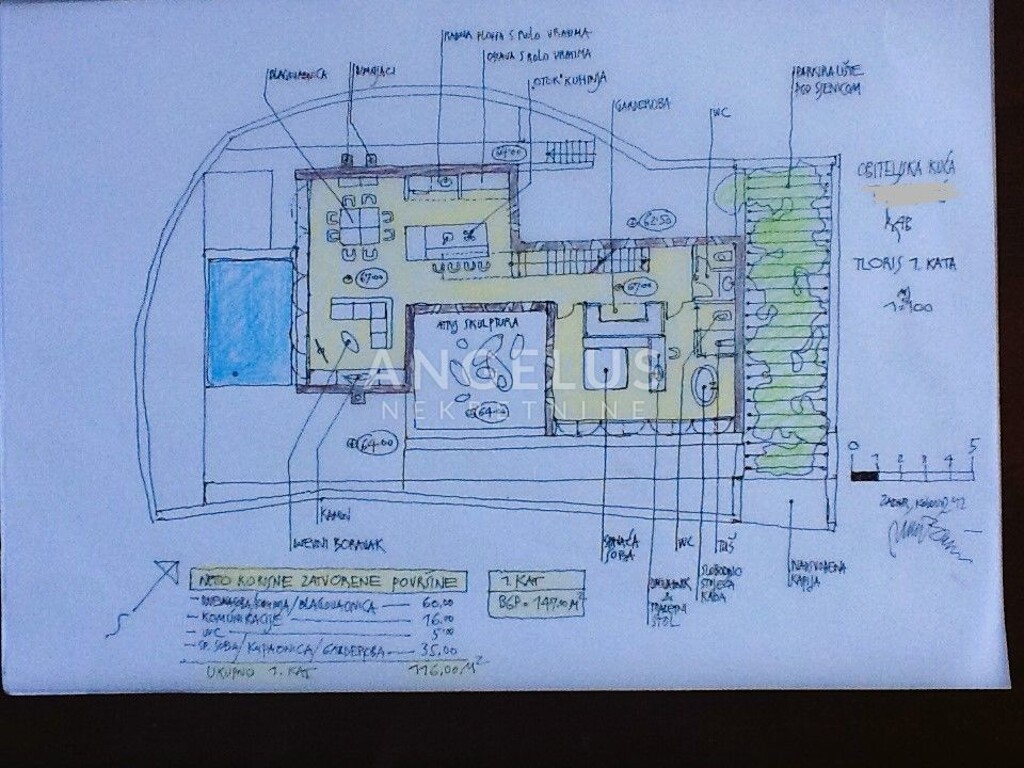 RADNA PLOHA S ROLO VRATIMA
OSTAVA S ROLO VRATIMA
OTOK KUHINJA
BLAGOVAONICA
DIMNJACI
GARDEROBA
WC
PARKIRALIŠTE
POD SJENICOM
OBITELJSKA KUĆA
TLORIS 1. KATA
1:100
62.50
67.00
67.00
ATRIJ SKULPTURA
ANGELUS
NEKRETNINE
64.00
64.00
0 1 2 3 4 5
ZADAR,
KAMIN
DNEVNI BORAVAK
SPAVAĆA
SOBA
WC
TUŠ
SLOBODNO
STOJEĆA
KADA
&
TOALETNI
STOL
NATKRIVENA
NETO KORISNE ZATVORENE POVRŠINE
KUHINJA/BLAGOVAONICA — 60,00
- KOMUNIKACIJE — 16,00
- WC — 5,00
- SP. SOBA/KUPAONICA/GARDEROBA — 35,00
UKUPNO 1. KAT 116,00 M²
1. KAT
BGP = 147.00 M²